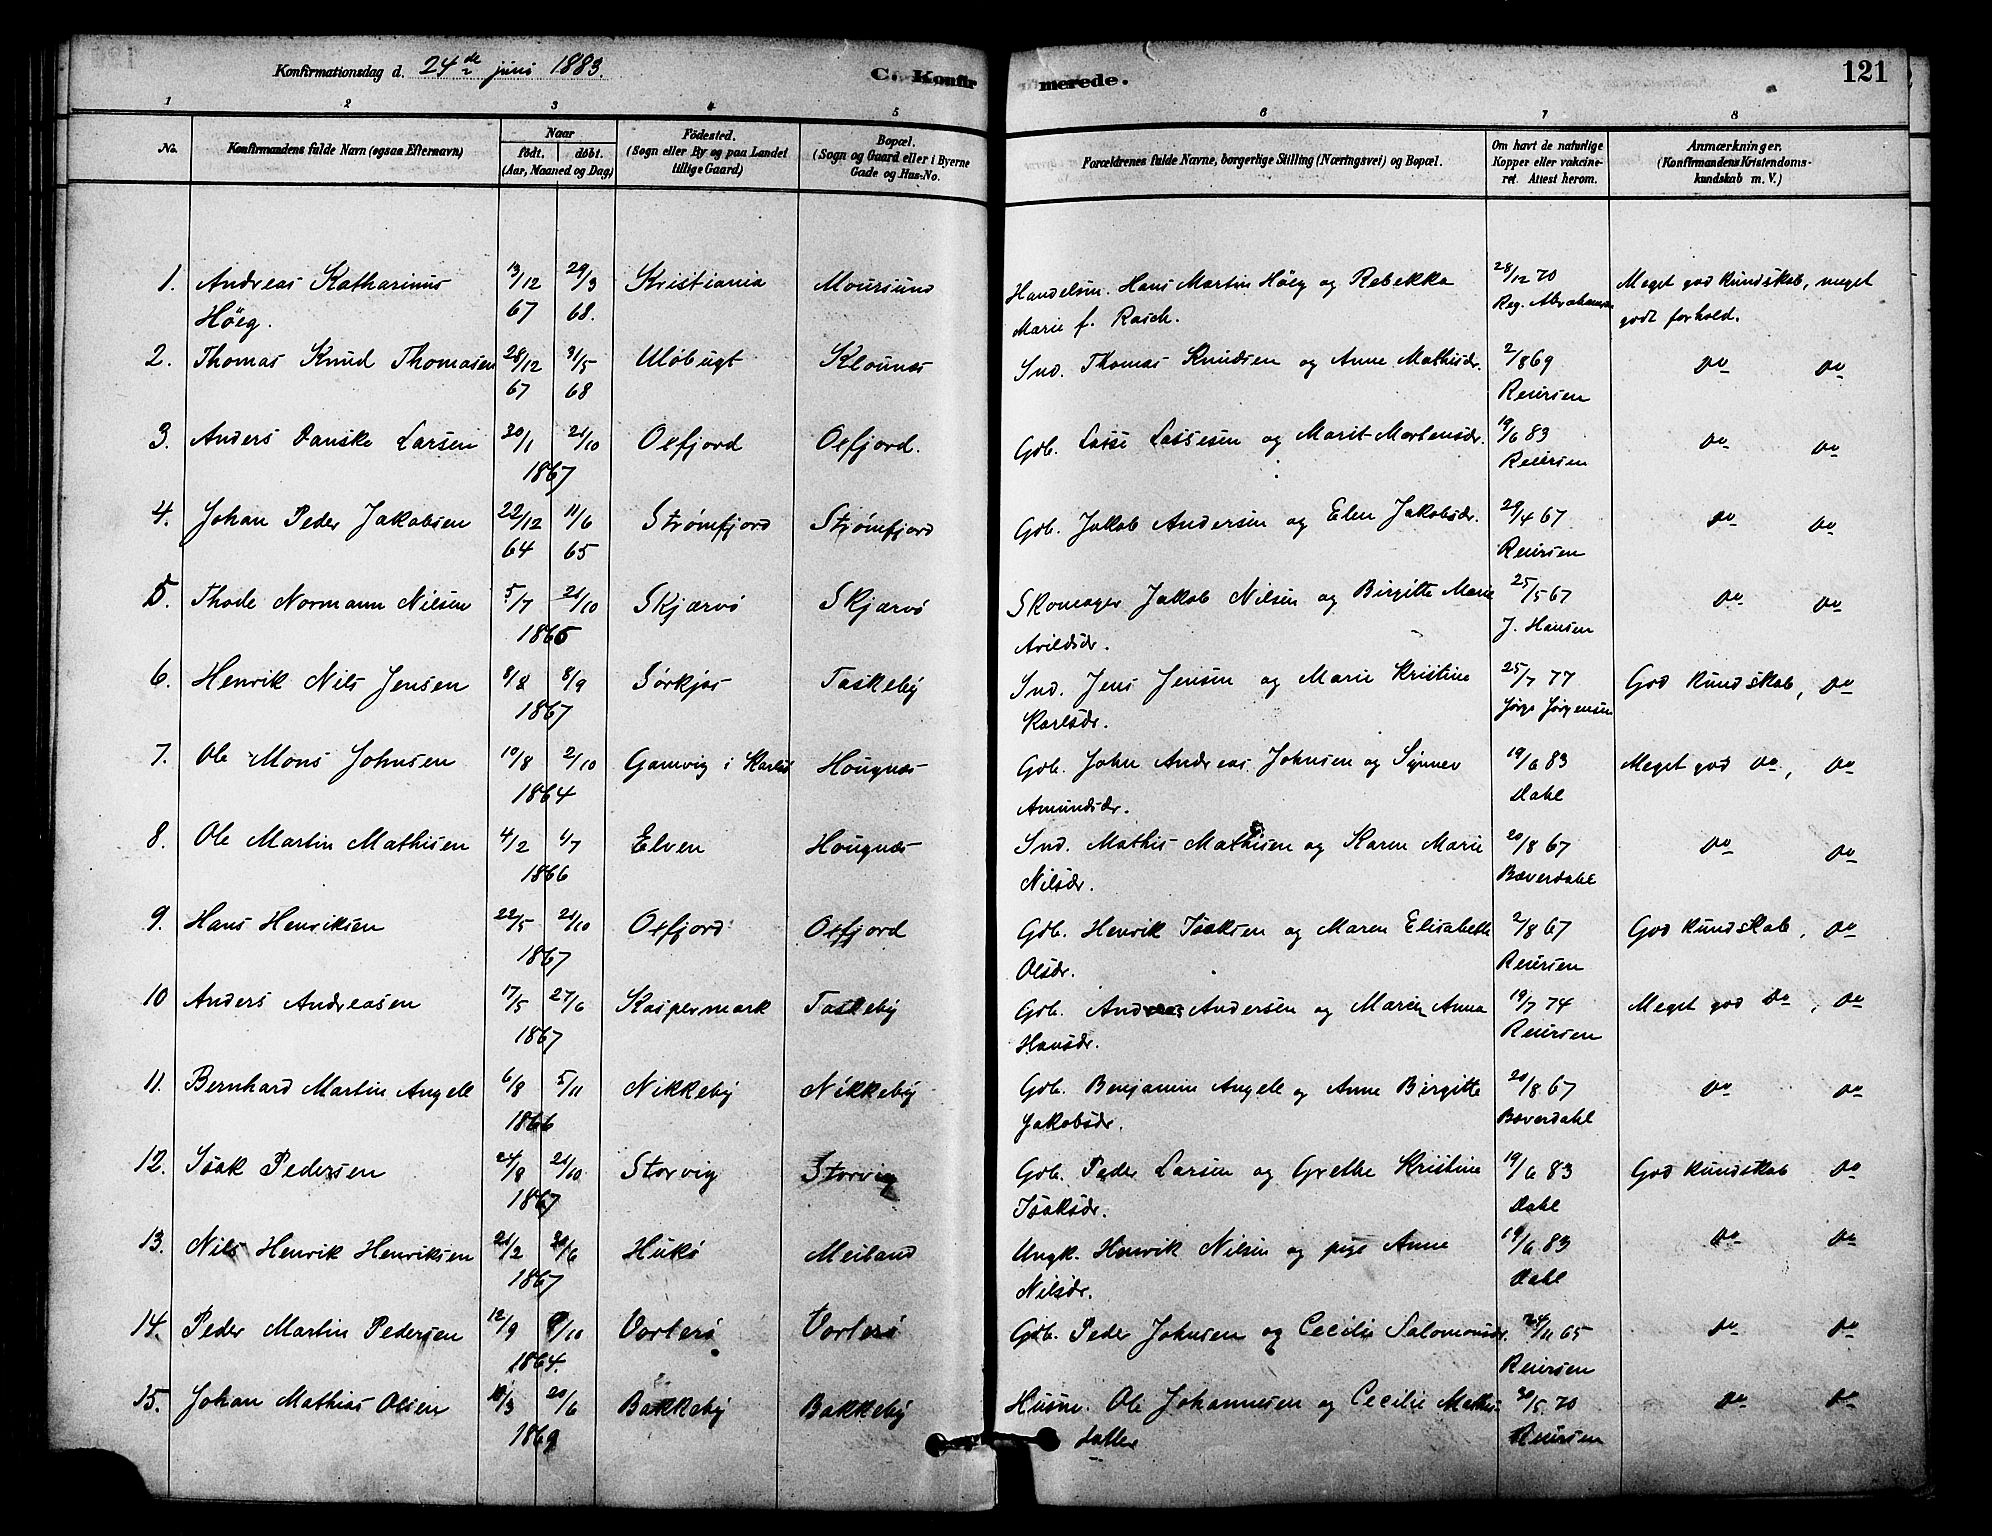 Konfirmationsdag d. 24de juni 1883. C. Konfirmerede. 121
1 2 3 4 5 6 7 8
No. Konfirmandens fulde Navn (ogsaa Efternavn) Naar födt. döbt. (Aar, Maaned og Dag) Födested. (Sogn eller By og paa Landet tillige Gaard) Bopæl. (Sogn og Gaard eller i Byerne Gade og Hus-No. Forældrenes fulde Navne, borgerlige Stilling (Næringsvei) og Bopæl. Om havt de naturlige Kopper eller vakcineret. Attest herom. Anmærkninger. (Konfirmandens Kristendomskundskab m. V.)
1. Andreas Katharinus 13/12 29/3 Kristiania Moursund Handelsm. Hans Martin Höeg og Rebekka 28/12 70 Meget god Kundskab, meget
Höeg. 67 68. Marie f. Rasch. Reg. Abrahamsen godt forhold.
2. Thomas Knud Thomasen 28/12 31/5 Ulöbugt Klounæs Ind. Thomas Knudsen og Anne Mathisdr. 2/8 69 do do
67 68 Reiersen
3. Anders Danske Larsen 30/1 21/10 Oxfjord Oxfjord. Gdb. Lasse Lassesen og Marit Mortensdr. 19/6 83 do do
1867 Reiersen
4. Johan Peder Jakobsen 22/12 11/6 Strømfjord Strømfjord Gdb. Jakob Andersen og Elen Jakobsdr. 29/4 67 do do
64 65 Reiersen
5. Thode Normann Nilsen 5/7 21/10 Skjærvö Skjærvö Skomager Jakob Nilsen og Birgitte Marie 25/5 67 do do
1866 Arildsdr. J. Hansen
6. Henrik Nils Jensen 6/8 8/9 Sörkjos Taskeby Ind. Jens Jensen og Marie Kristine 25/7 77 God Kundskab, do
1867 Karlsdr. Jörgensen
7. Ole Mons Johnsen 10/8 2/10 Gamvig i Karlsö Hougnæs Gdb. John Andreas Johnsen og Synnev 19/6 83 Meget god do, do
1864 Amundsdr. Dahl
8. Ole Martin Mathisen 4/2 1/7 Elven Hougnæs Ind. Mathis Mathisen og Karen Marie 20/8 67 do do
1866 Nilsdr. Bæverdahl
9. Hans Henriksen 22/5 21/10 Oxfjord Oxfjord Gdb. Henrik Isaksen og Maren Elisabeth 2/8 67 God kundskab, do
1867 Olsdr. Reiersen
10 Anders Andreasen 17/5 27/6 Kaspermark Taskeby Gdb. Andreas Andersen og Maren Anna 19/7 74 Meget god do, do
1867 Hansdr. Reiersen
11. Bernhard Martin Angell 6/8 5/11 Nikkeby Nikkeby Gdb. Benjamin Angell og Anne Birgitte 20/8 67 do do
1866 Jakobsdr. Bæverdahl
12. Isak Pedersen 24/8 21/10 Storvig Storvig Gdb. Peder Larsen og Grethe Kristine 19/6 83 God kundskab do
1867 Isaksdr. Dahl
13. Nils Henrik Henriksen 21/2 20/6 Hukö Meiland Ungk. Henrik Nilsen og pige Anne 19/6 83 do do
1867 Nilsdr. Dahl
14. Peder Martin Pedersen 12/9 9/10 Vorterö Vorterö Gdb. Peder Johnsen og Cecilie Salomonsdr. 24/11 65 do do
1864. Reiersen
15. Johan Mathias Olsen 10/3 20/6 Bakkeby Bakkeby Husm. Ole Johannesen og Cecilie Mathis 30/5 70 do do
1869 datter Reiersen